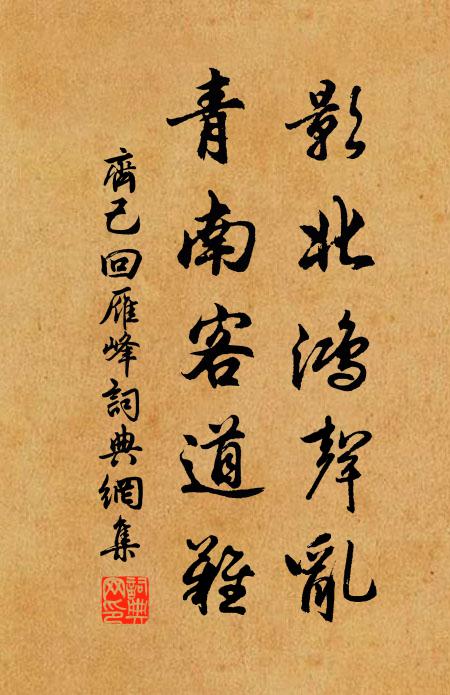 影北鴻聲亂
青南客道難
齊己回雁峰詞典網集
詞典
网印